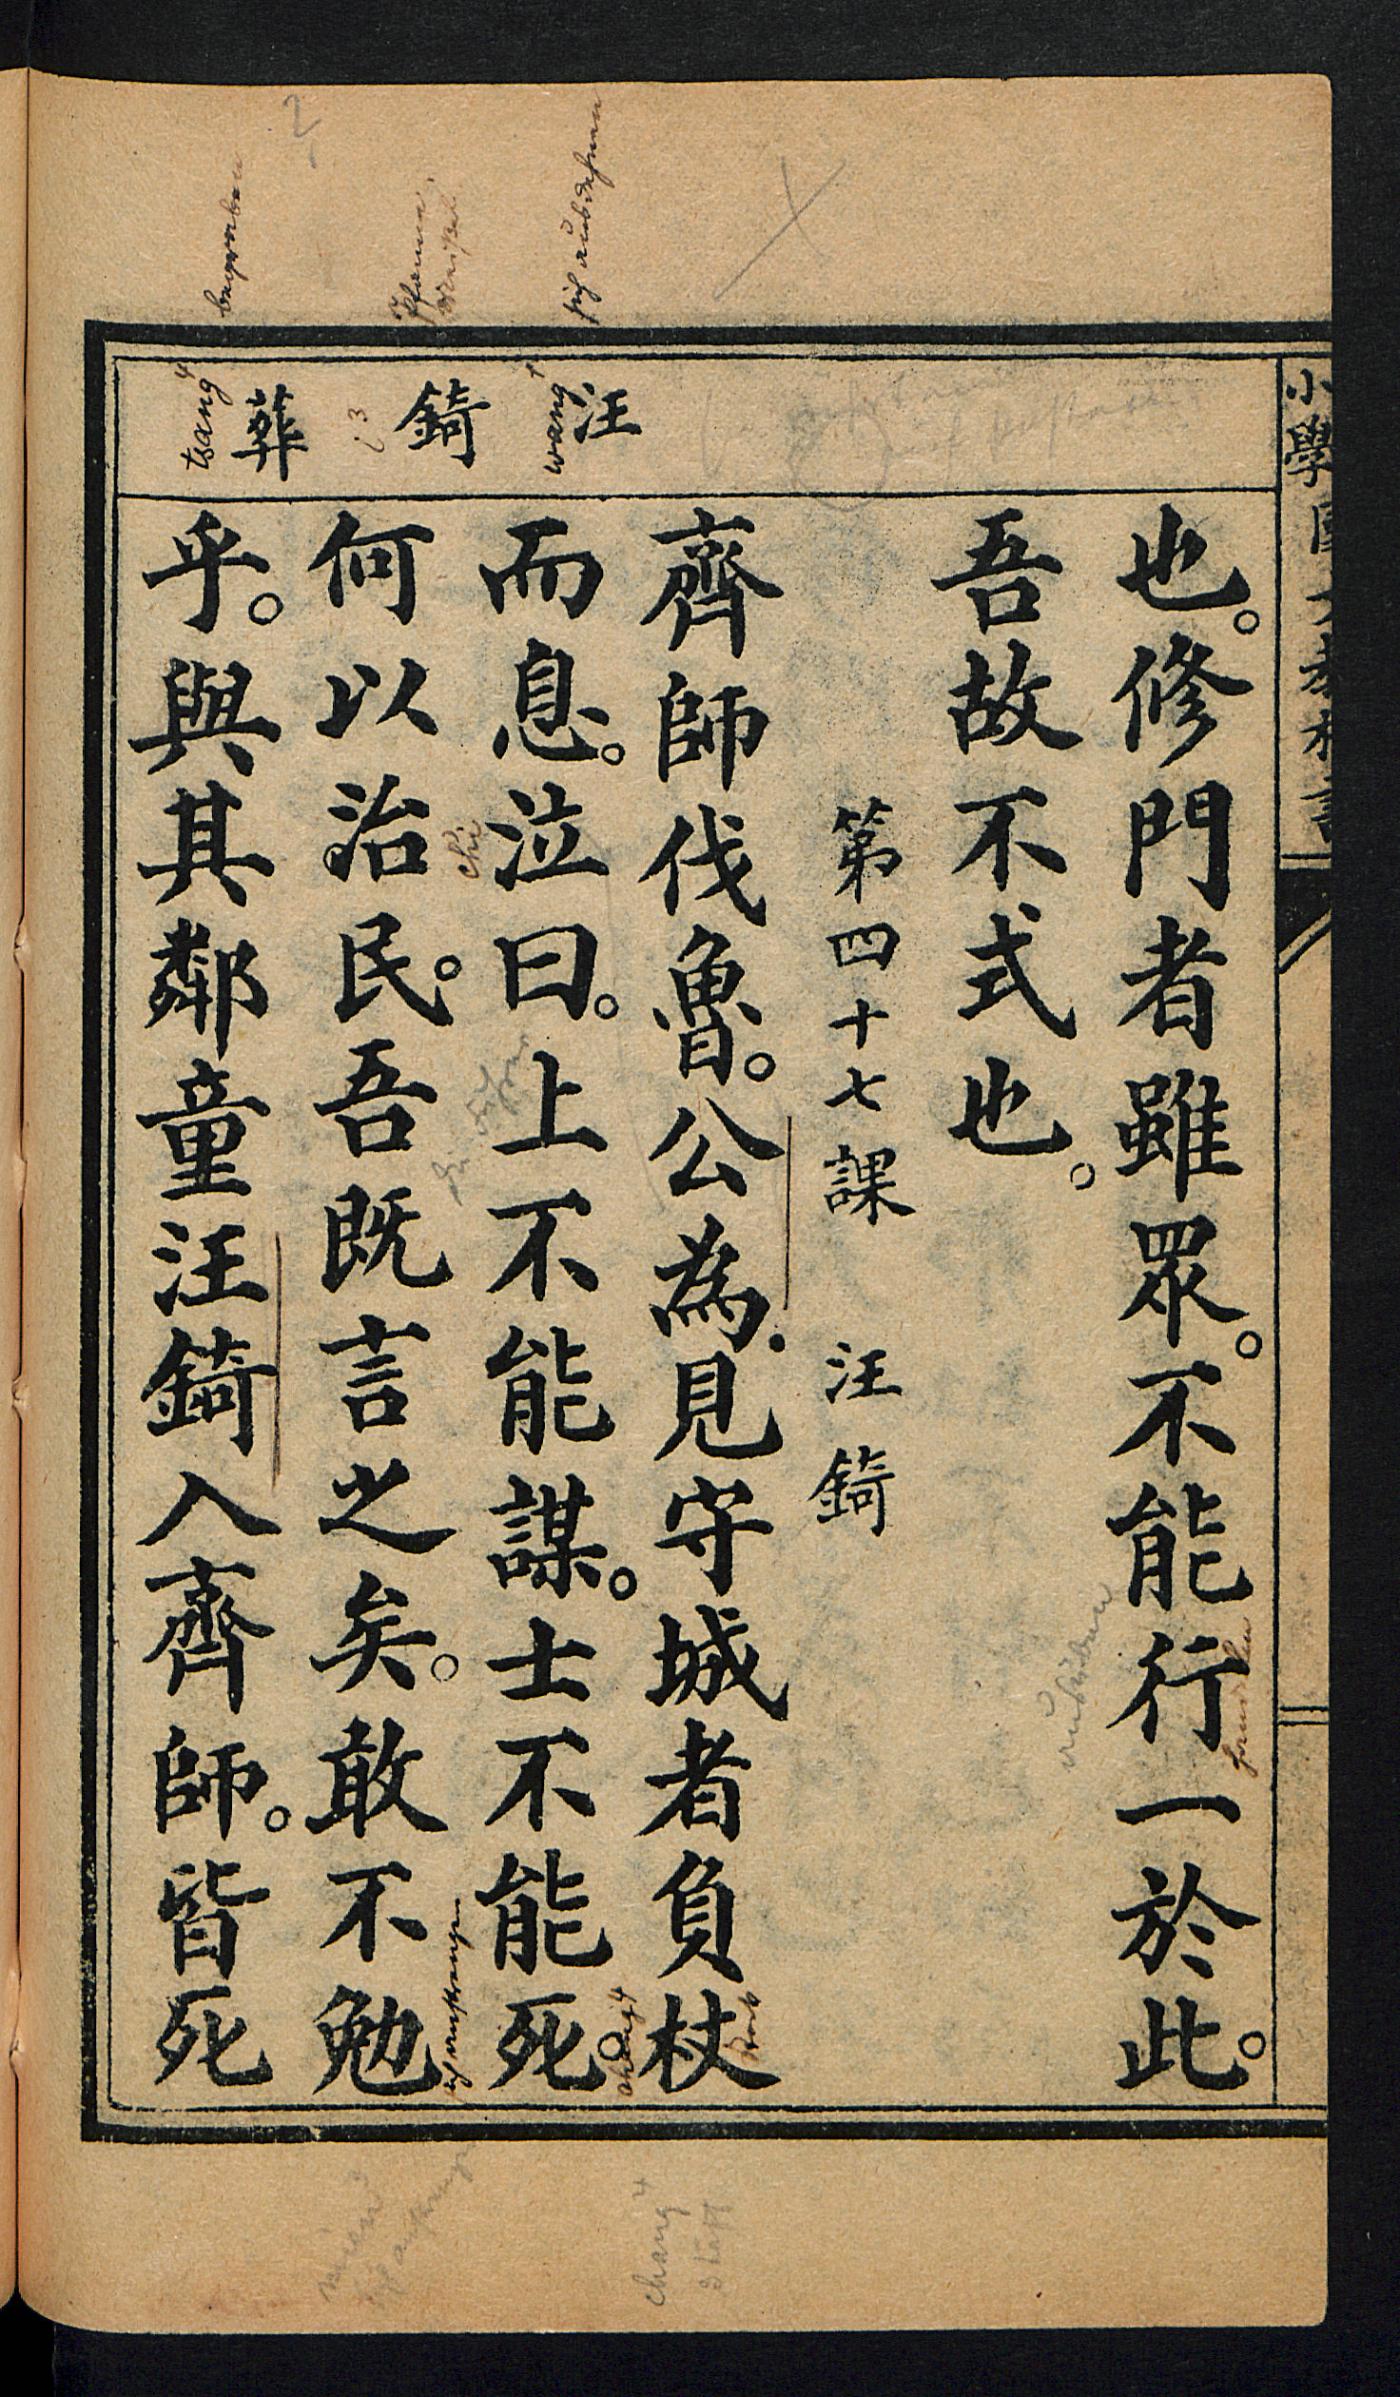 汪
錡
葬
wang
tsang⁴
begraben
也。修門者雖眾。不能行一於此。
吾故不式也。
第四十七課 汪錡
齊師伐魯。公為見守城者負杖
而息。泣曰。上不能謀。士不能死。
何以治民。吾既言之矣。敢不勉
乎。與其鄰童汪錡入齊師。皆死
chi
chang⁴